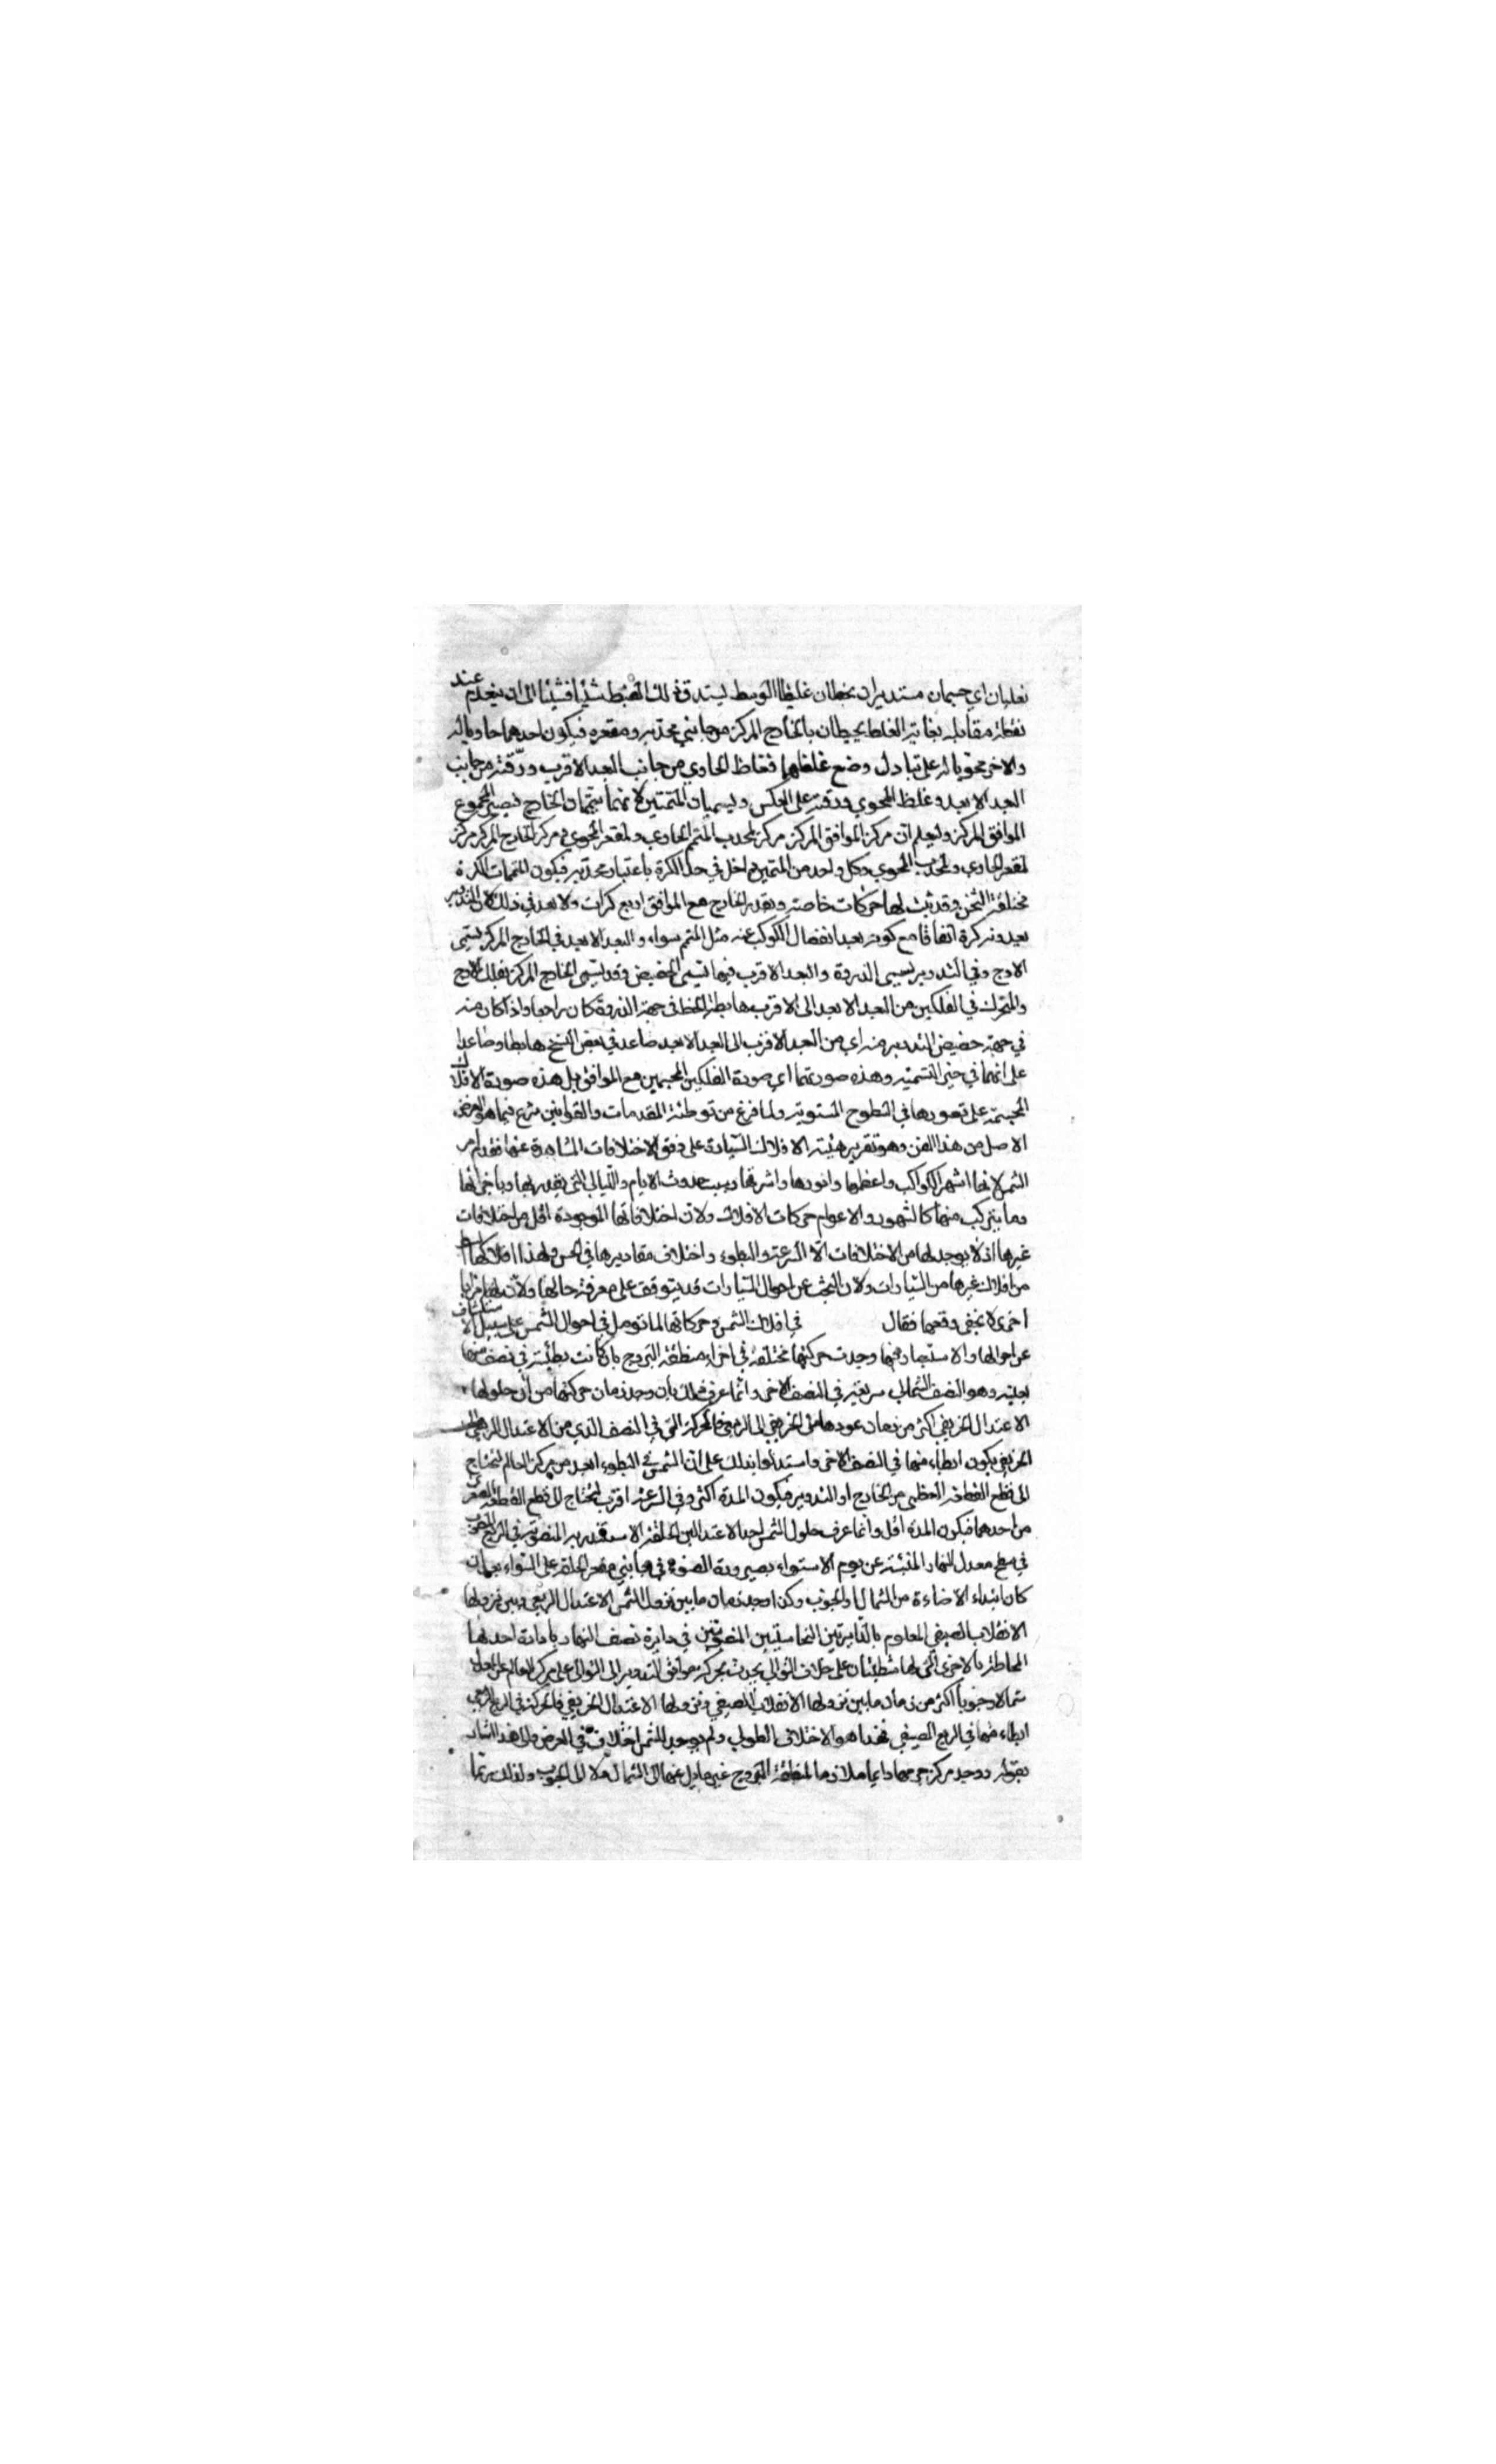 نعليان اي جسمان مستديران يحيطان غليظا الوسط يستدق ذلك الغلظ شيئا فشيئا الى ان ينعدم عند
نقطة مقابلة بغاية الغلظ يحيطان بالخارج المركز من جانبي محدبه ومقعره فيكون احدهما حاويا له
والاخر محويا له على تبادل وضع غلظهما فغلظ الحاوي من جانب البعد الاقرب ورقته من جانب
البعد الابعد وغلظ المحوي ورقته على العكس ويسميان المتممين لانهما يتممان الخارج فيصير المجموع
الموافق المركز وليعلم ان مركز الموافق المركز مركز لمحدب المتمم الحاوي ولمقعر المحوي ومركز الخارج المركز مركز
لمقعر الحاوي ولمحدب المحوي وكل واحد من المتممين داخل في حد الكرة باعتبار محدبه فيكون المتممات اكرة
مختلفة الثخن وقد ثبت لها حركات خاصة ويعد الخارج مع الموافق اربع كرات ولا بعد في ذلك لان التدوير
يعدونه كرة اتفاقا مع كونه بعد انفصال الكوكب عنه مثل المتمم سواء والبعد الابعد في الخارج المركز يسمى
الاوج وفي التدوير يسمى الذروة والبعد الاقرب فيهما يسمى الحضيض وقد يسمى الخارج المركز بفلك الاوج
والمتحرك في الفلكين من البعد الابعد الى الاقرب هابط في جهة الذروة كان راجعا واذا كان منه
في جهة حضيض التدوير منه اي من البعد الاقرب الى البعد الابعد صاعد في بعض النسخ هابطا وصاعدا
على انهما في حيز التسمية وهذه صورتهما اي صورة الفلكين المجسمين مع الموافق بل هذه صورة الافلاك
المجسمة على تصورها في السطوح المستوية ولما فرغ من توطئة المقدمات والقوانين شرع فيما هو الغرض
الاصل من هذا الفن وهو تقرير هيئة الافلاك السيارة على وفق الاختلافات المشاهدة عنها فقدم امر
الشمس لانها اشهر الكواكب واعظمها وانورها واشرفها وبسبب حدوث الايام والليالي التي يقدر بها وباجزائها
وما يتركب منها كالشهور والاعوام حركات الافلاك ولان اختلافاتها الموجودة اقل من اختلافات
غيرها اذ لا يوجد لها من الاختلافات الا السرعة والبطوء واختلاف مقاديرها في الحس ولهذا افلاكها
من افلاك غيرها من السيارات ولان البحث عن احوال السيارات قد يتوقف على معرفة حالها ولان لها مزايا
اخرى لا يخفى وقعها فقال في افلاك الشمس وحركاتها لما توصل في احوال الشمس على سبيل الاستكشاف
عن احوالها والاستبصار فيها وجدت حركتها مختلفة في اجزاء منطقة البروج بان كانت بطيئة في نصف منها
بعينه وهو النصف الشمالي سريعة في النصف الاخر وانما عرف ذلك بان وجد زمان حركتها من ان حلولها
الاعتدال الخريفي اكثر من زمان عودها من الخريفي الى الربيعي فالحركة التي في النصف الذي من الاعتدال الربيعي الى
الخريفي يكون ابطاء منها في النصف الاخر واستدلوا بذلك على ان الشمس في البطوء ابعد من مركز العالم فتحتاج
الى قطع القطعة العظمى من الخارج او التدوير فيكون المدة اكثر وفي السرعة اقرب فتحتاج الى قطع القطعة الصغرى
من احدهما فيكون المدة اقل وانما عرف حلول الشمس احد الاعتدالين بالحلقة المنصوبة في
في سطح معدل النهار المنبئة عن يوم الاستواء بصيرورة الضوء في جانبي مقعر الحلقة على السواء بعد ان
كان ابتداء الاضاءة من الشمال او الجنوب وكذا وجد زمان ما بين نزول الشمس الاعتدال الربيعي وبين نزولها
الانقلاب الصيفي المعلوم بالدايرتين النحاسيتين المنصوبتين في دايرة نصف النهار بادارة احدهما
المحاطة بالاخرى التي لها شظيتان على
شمالا وجنوبا اكثر من زمان ما بين نزولها الانقلاب الصيفي ونزولها الاعتدال الخريفي فالحركة في الربع الربيعي
ابطاء منها في الربع الصيفي فهذا هو الاختلاف الطولي ولم يوجد للشمس اختلاف في العرض والى هذا اشار
بقوله ووجد مركز جرمها دايما ملازما لمنطقة البروج غير مايل عنها الى الشمال ولا الى الجنوب ولذلك